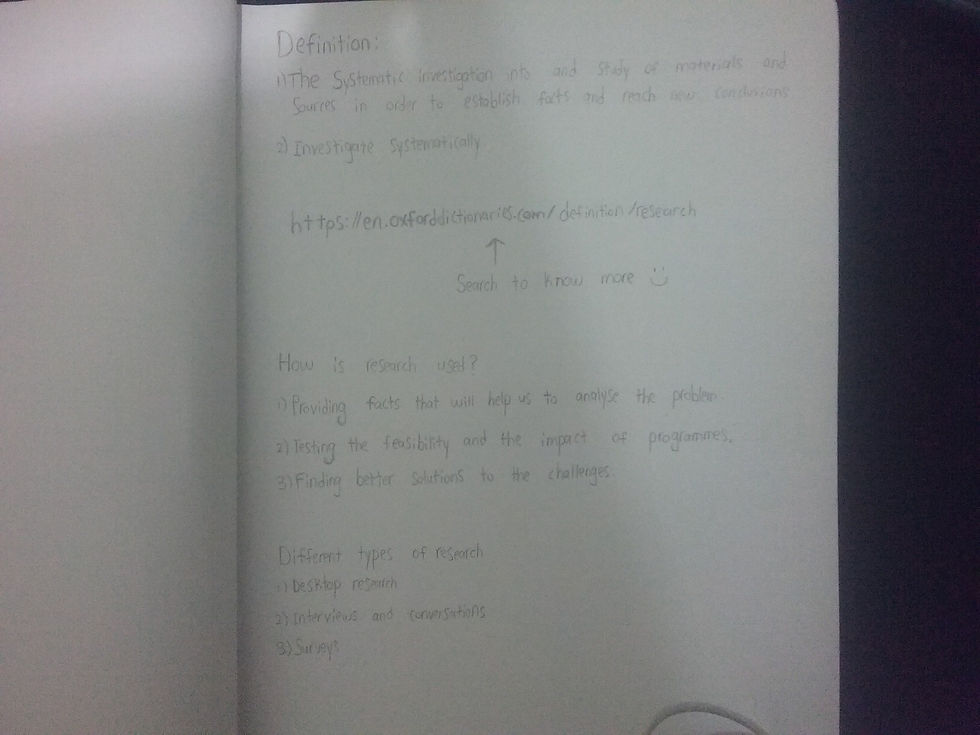 Definition:
1) The Systematic investigation into and study of materials and
Sources in order to establish facts and reach new conclusions
2) Investigate Systematically
https://en.oxforddictionaries.com/definition/research
↑
Search to know more :)
How is research used?
1) Providing facts that will help us to analyse the problem.
2) Testing the feasibility and the impact of programmes.
3) Finding better solutions to the challenges.
Different types of research
1) Desktop research
2) Interviews and conversations
3) Surveys